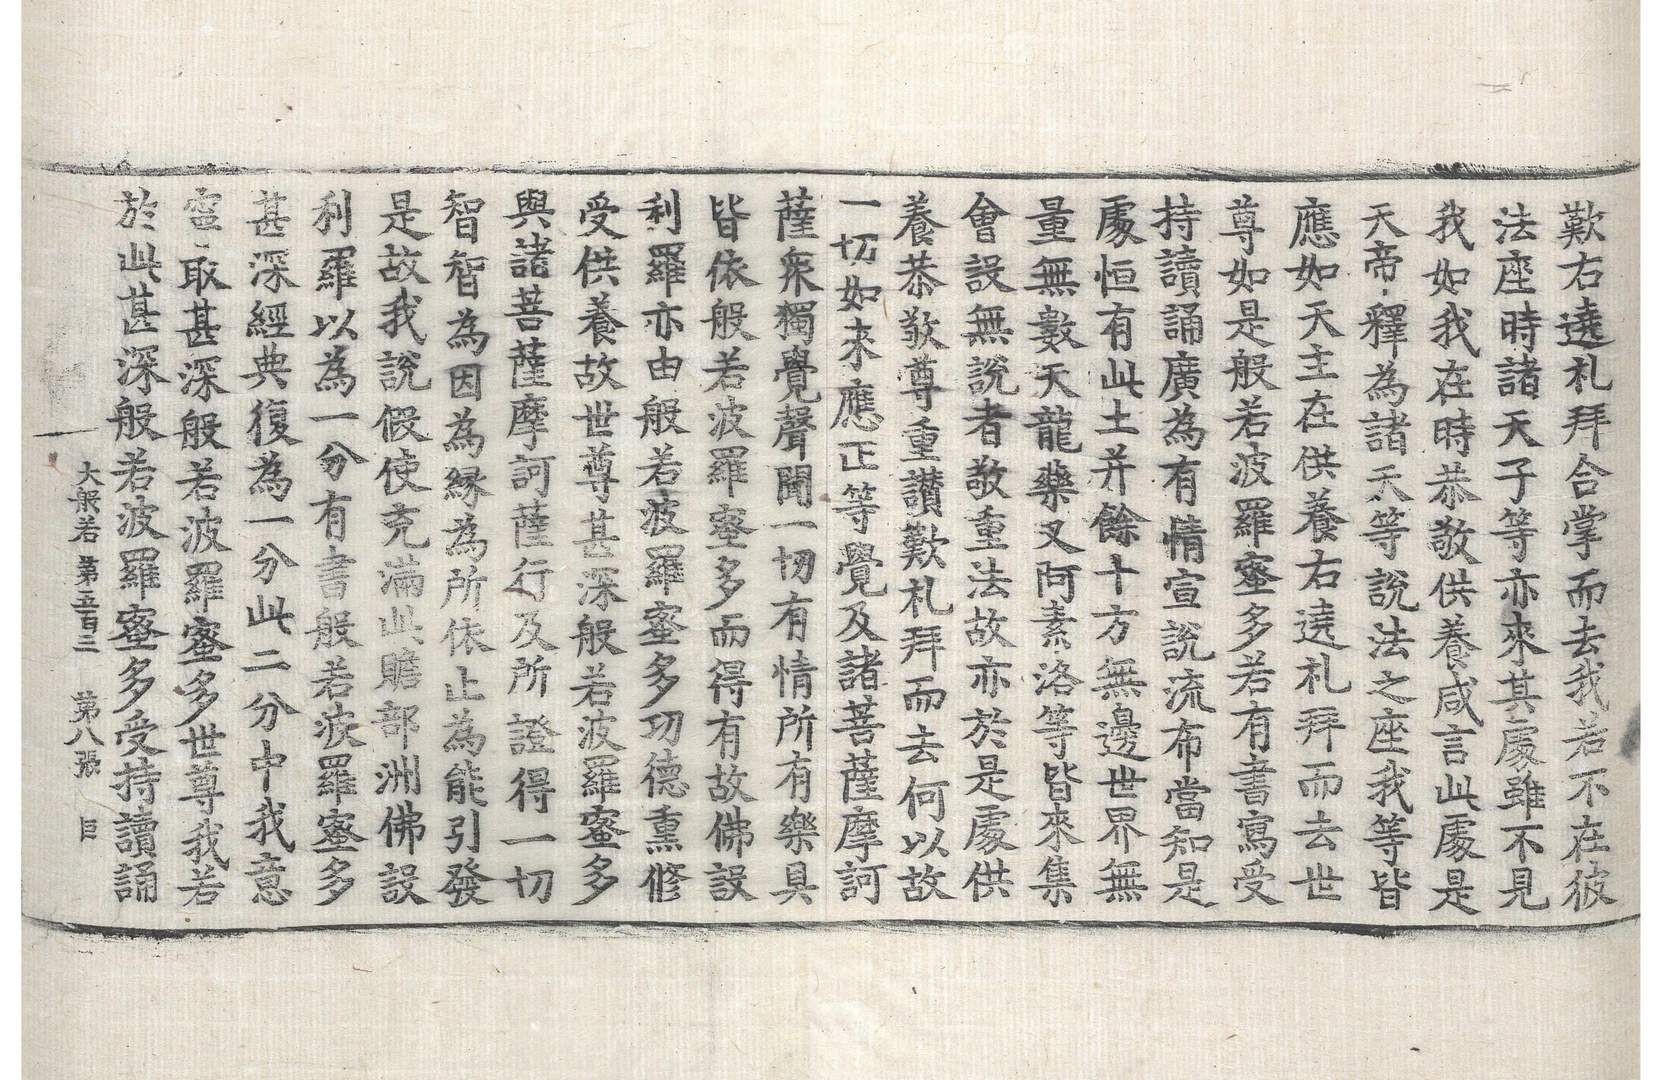 歎右遶礼拜合掌而去我若不在彼
法座時諸天子等亦來其處雖不見
我如我在時恭敬供養咸言此處是
天帝釋為諸天等說法之座我等皆
應如天主在供養右遶礼拜而去世
尊如是般若波羅蜜多若有書寫受
持讀誦廣為有情宣說流布當知是
處恒有此土并餘十方無邊世界無
量無數天龍藥叉阿素洛等皆來集
會設無說者敬重法故亦於是處供
養恭敬尊重讃歎礼拜而去何以故
一切如來應正等覺及諸菩薩摩訶
薩衆獨覺聲聞一切有情所有樂具
皆依般若波羅蜜多而得有故佛設
利羅亦由般若波羅蜜多功德熏修
受供養故世尊甚深般若波羅蜜多
與諸菩薩摩訶薩行及所證得一切
智智為因為緣為所依止為能引發
是故我說假使充滿此贍部洲佛設
利羅以為一分有書般若波羅蜜多
甚深經典復為一分此二分中我意
寧取甚深般若波羅蜜多世尊我若
於此甚深般若波羅蜜多受持讀誦
大般若 第五百三 第八張 巨